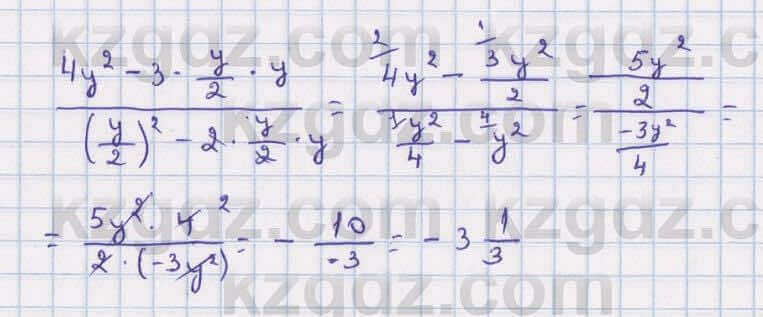 (4y² − 3 · y/2 · y) / ((y/2)² − 2 · y/2 · y) = (²⁄4y² − ¹⁄3y²/2) / (¹⁄y²/4 − ⁴⁄y²) = (5y²/2) / (−3y²/4) =
= (5y² · 4 ²) / (2 · (−3y²)) = − 10/−3 = − 3 1/3
kzgdz.com
kzgdz.com
kzgdz.com
kzgdz.com